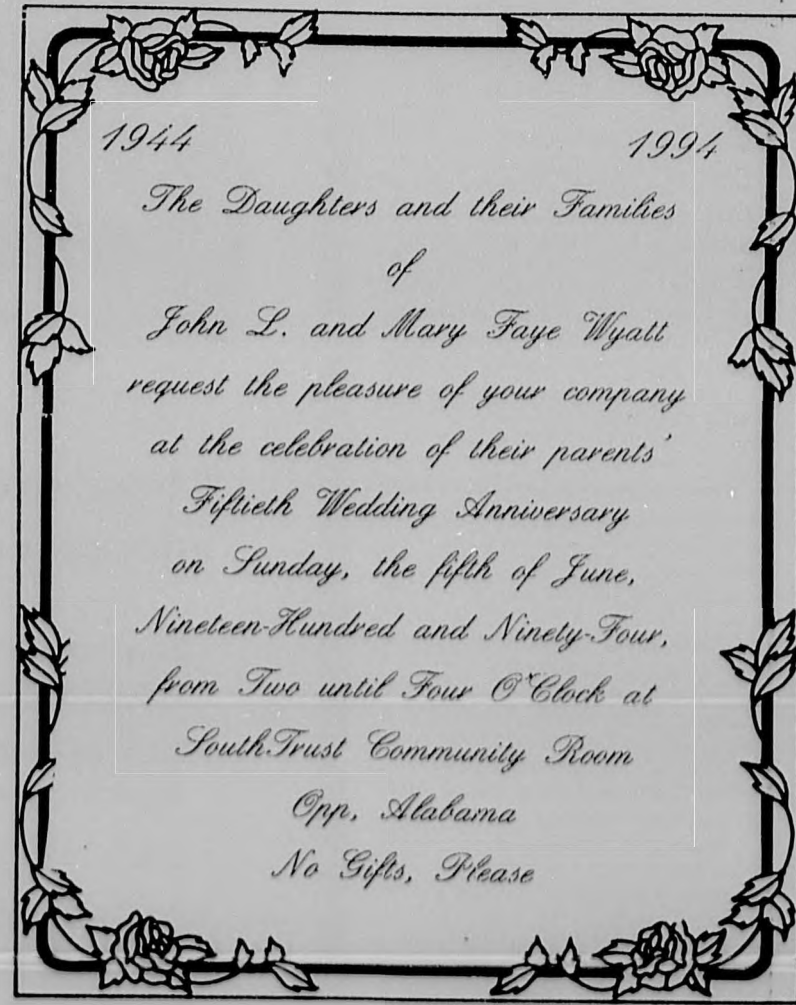 1944 1994
The Daughters and their Families
of
John L. and Mary Faye Wyatt
request the pleasure of your company
at the celebration of their parents'
Fiftieth Wedding Anniversary
on Sunday, the fifth of June,
Nineteen-Hundred and Ninety-Four,
from Two until Four O'Clock at
SouthTrust Community Room
Opp, Alabama
No Gifts, Please